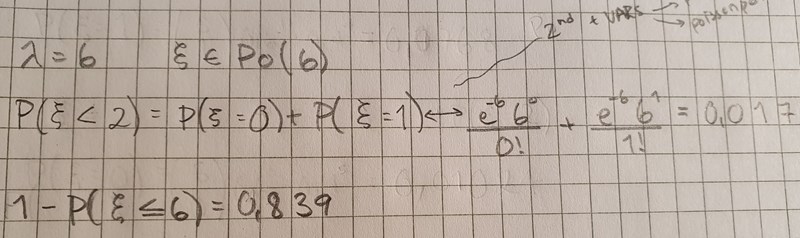 2nd + VARS → → poissonp
λ = 6 ξ ∈ Po(6)
P(ξ < 2) = P(ξ = 0) + P(ξ = 1) ↔ e^-6 6^0 / 0! + e^-6 6^1 / 1! = 0,017
1 - P(ξ ≤ 6) = 0,839